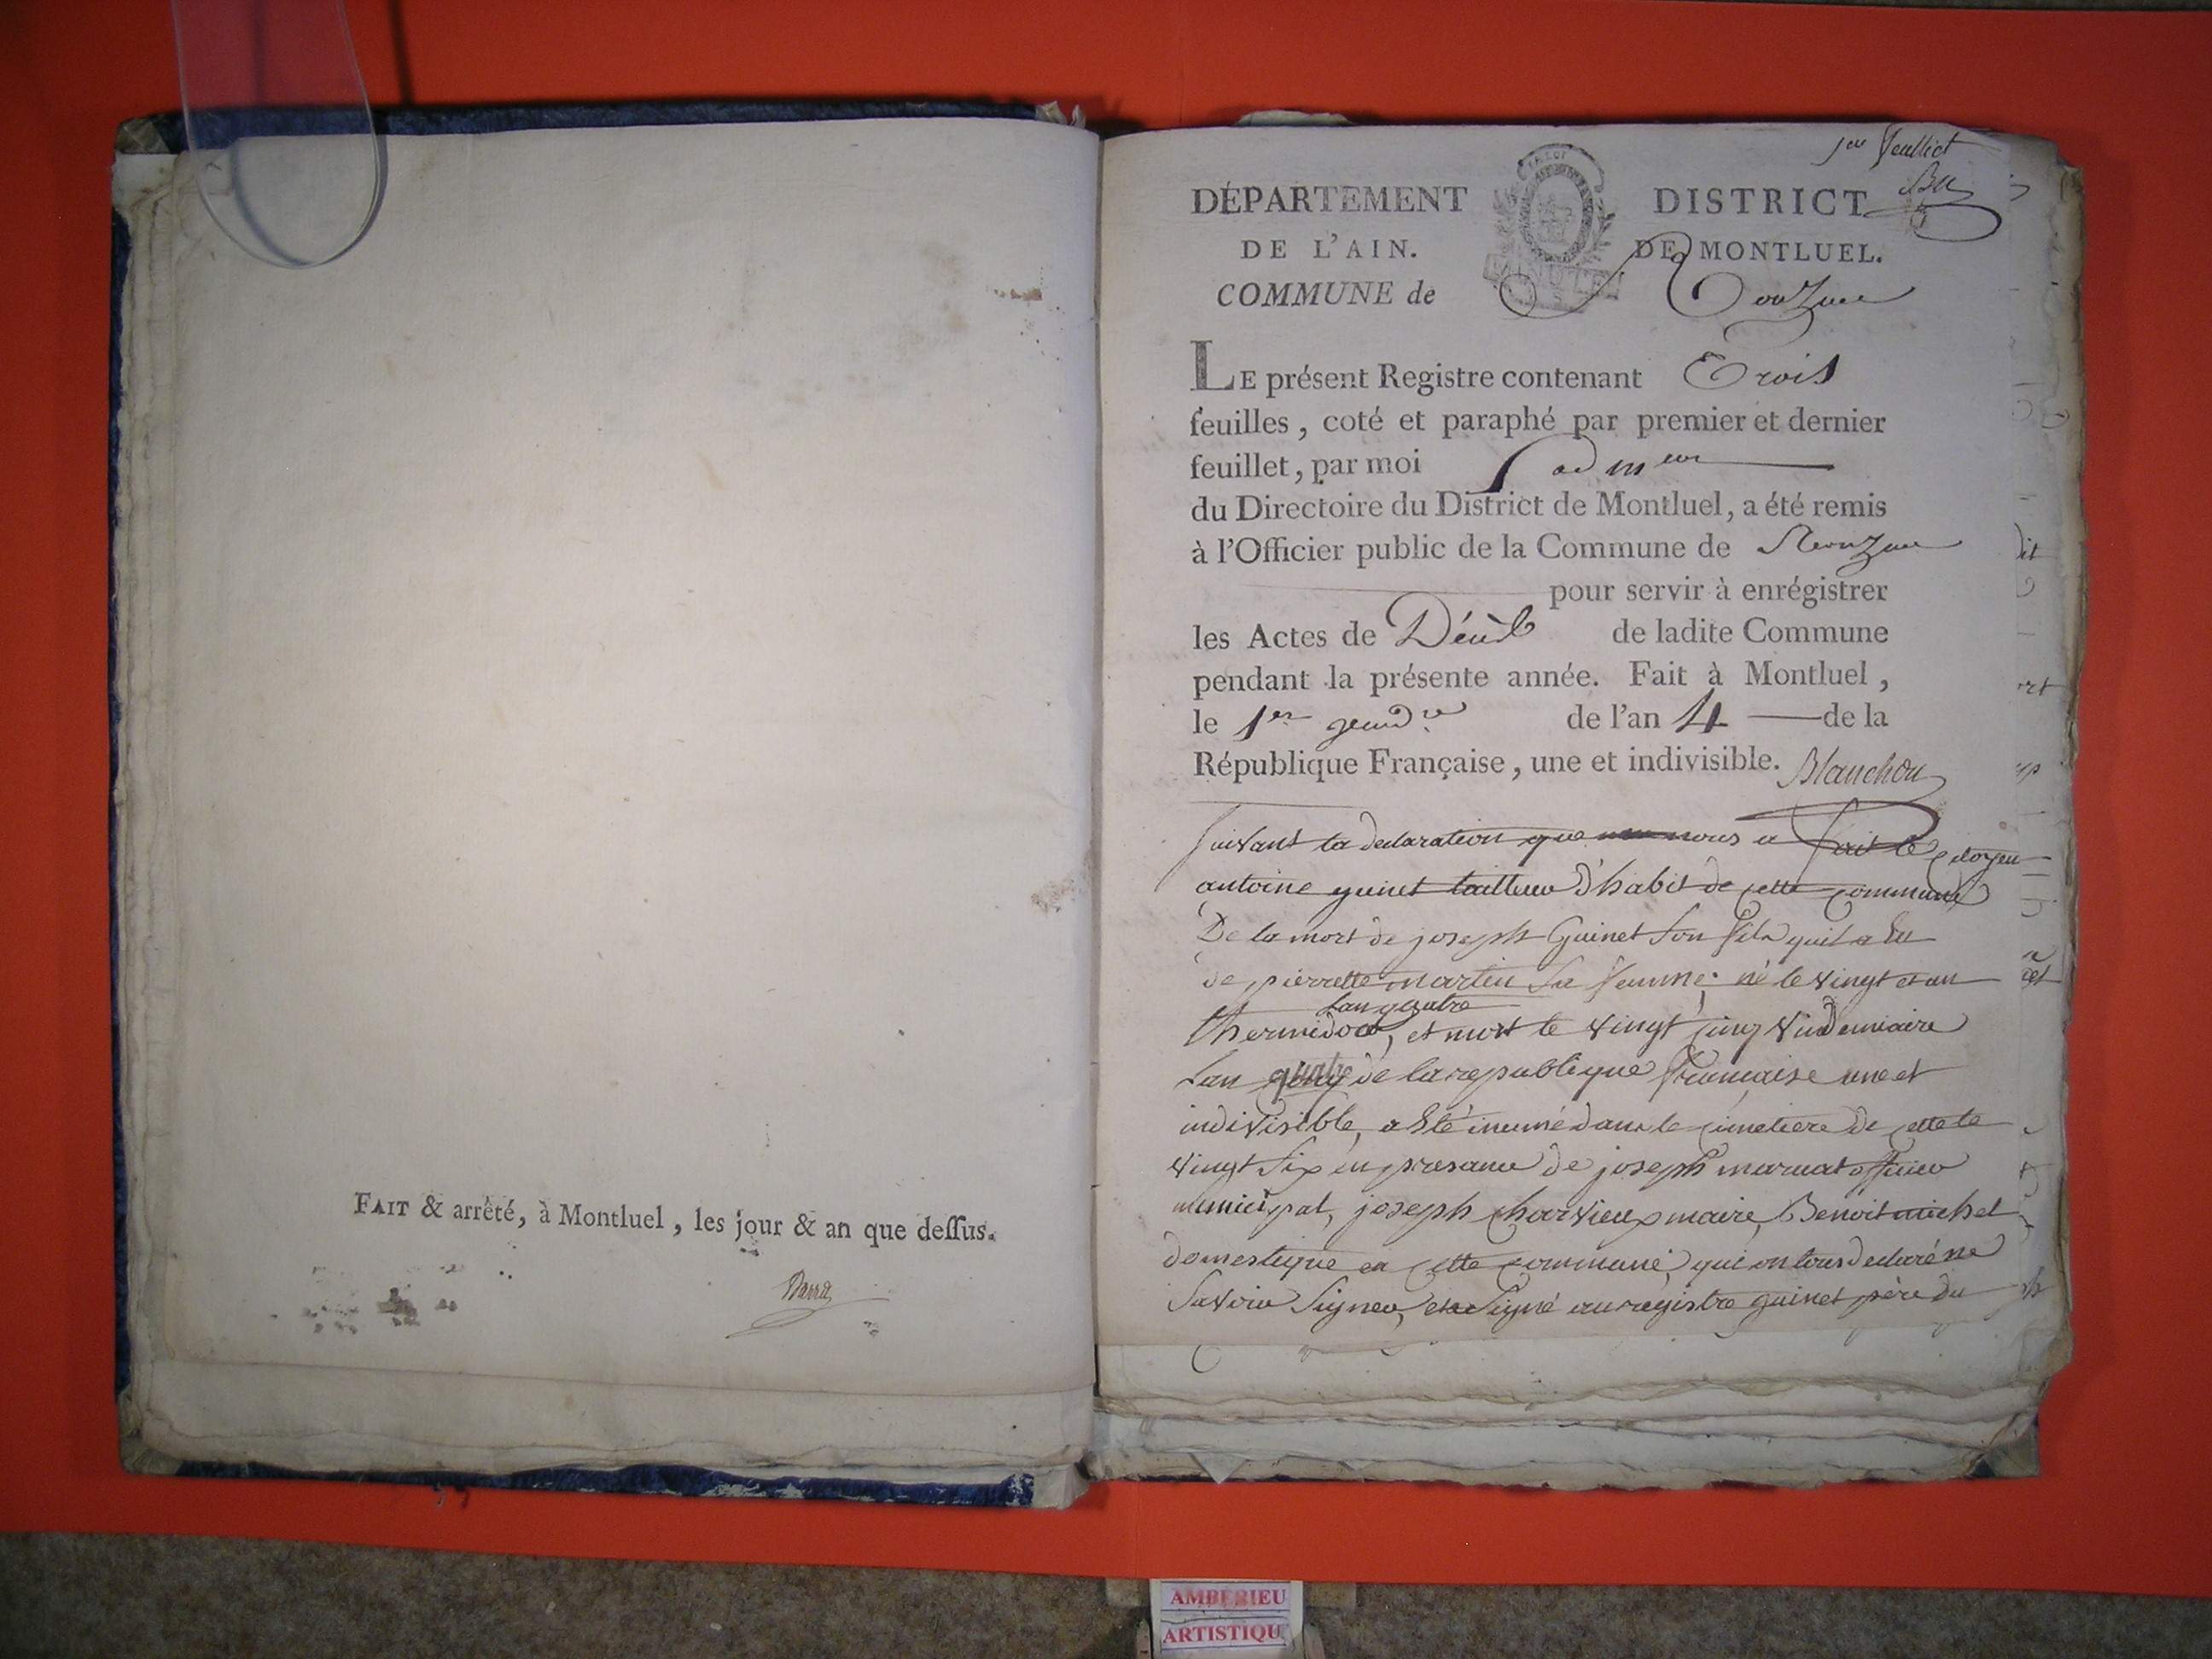 FAIT & arrêté, à Montluel, les jour & an que deſſus.
Barra
1er feuillet
DÉPARTEMENT DISTRICT
DE L'AIN. DE MONTLUEL.
COMMUNE de
LE présent Registre contenant Trois
feuilles, coté et paraphé par premier et dernier
feuillet, par moi
du Directoire du District de Montluel, a été remis
à l'Officier public de la Commune de
pour servir à enrégistrer
les Actes de Décès de ladite Commune
pendant la présente année. Fait à Montluel,
le 1er de l'an 4 de la
République Française, une et indivisible. Blanchon
suivant la declaration que nous a fait le citoyen
antoine guinet tailleur d'habit de cette commune
De la mort de joseph Guinet son fils quil a Eu
de pierrette martin sa femme; né le vingt et un
lan quatre
thermidor, et mort le vingt cinq vindemiaire
lan de la republique francaise une et
indivisible, a été inumé dans le cimetiere de cette le
vingt six en presance de joseph officier
municipal, joseph charvieux maire, Benoit michel
domestique en cette commune, qui on tous declaré ne
savoir signer, signé au registre guinet père du
AMBERIEU
ARTISTIQU